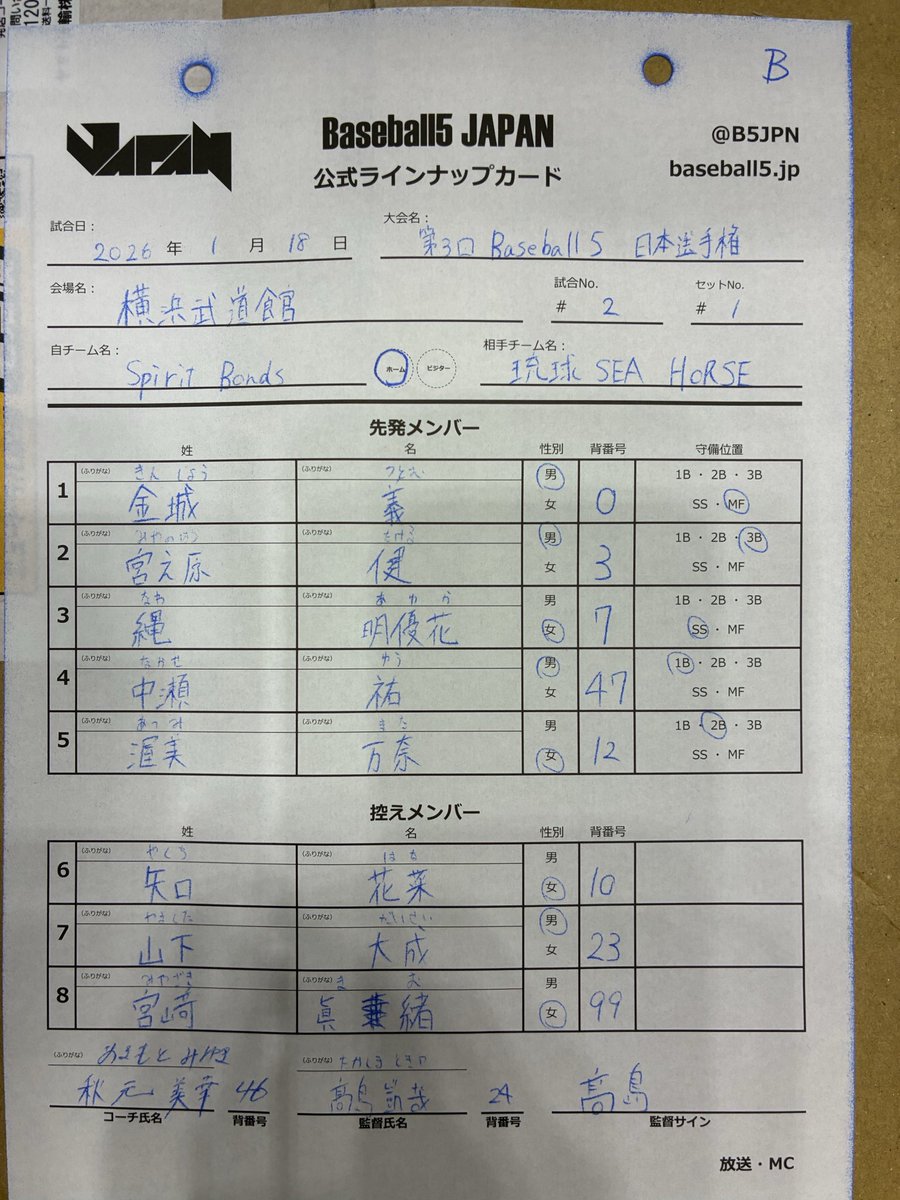 B
JAPAN
Baseball5 JAPAN
公式ラインナップカード
@B5JPN
baseball5.jp
試合日： 2026 年 1 月 18 日
大会名： 第3回 Baseball5 日本選手権
会場名： 横浜武道館
試合No. # 2
セットNo. # 1
自チーム名： Spirit Bonds
ホーム ビジター
相手チーム名： 琉球 SEA HORSE
先発メンバー
姓 名 性別 背番号 守備位置
(ふりがな) きんじょう (ふりがな) つとむ 男 1B・2B・3B
1 金城 義 女 0 SS・MF
(ふりがな) みやのはら (ふりがな) たける 男 1B・2B・3B
2 宮之原 健 女 3 SS・MF
(ふりがな) なわ (ふりがな) あゆか 男 1B・2B・3B
3 縄 明優花 女 7 SS・MF
(ふりがな) なかせ (ふりがな) ゆう 男 1B・2B・3B
4 中瀬 祐 女 47 SS・MF
(ふりがな) あつみ (ふりがな) まな 男 1B・2B・3B
5 渥美 万奈 女 12 SS・MF
控えメンバー
姓 名 性別 背番号
(ふりがな) やぐち (ふりがな) はな 男
6 矢口 花菜 女 10
(ふりがな) やました (ふりがな) たいせい 男
7 山下 大成 女 23
(ふりがな) みやざき (ふりがな) まお 男
8 宮崎 眞緒 女 99
(ふりがな) あきもと みゆき (ふりがな) たかしま
秋元 美幸 46 高島 24 高島
コーチ氏名 背番号 監督氏名 背番号 監督サイン
放送・MC